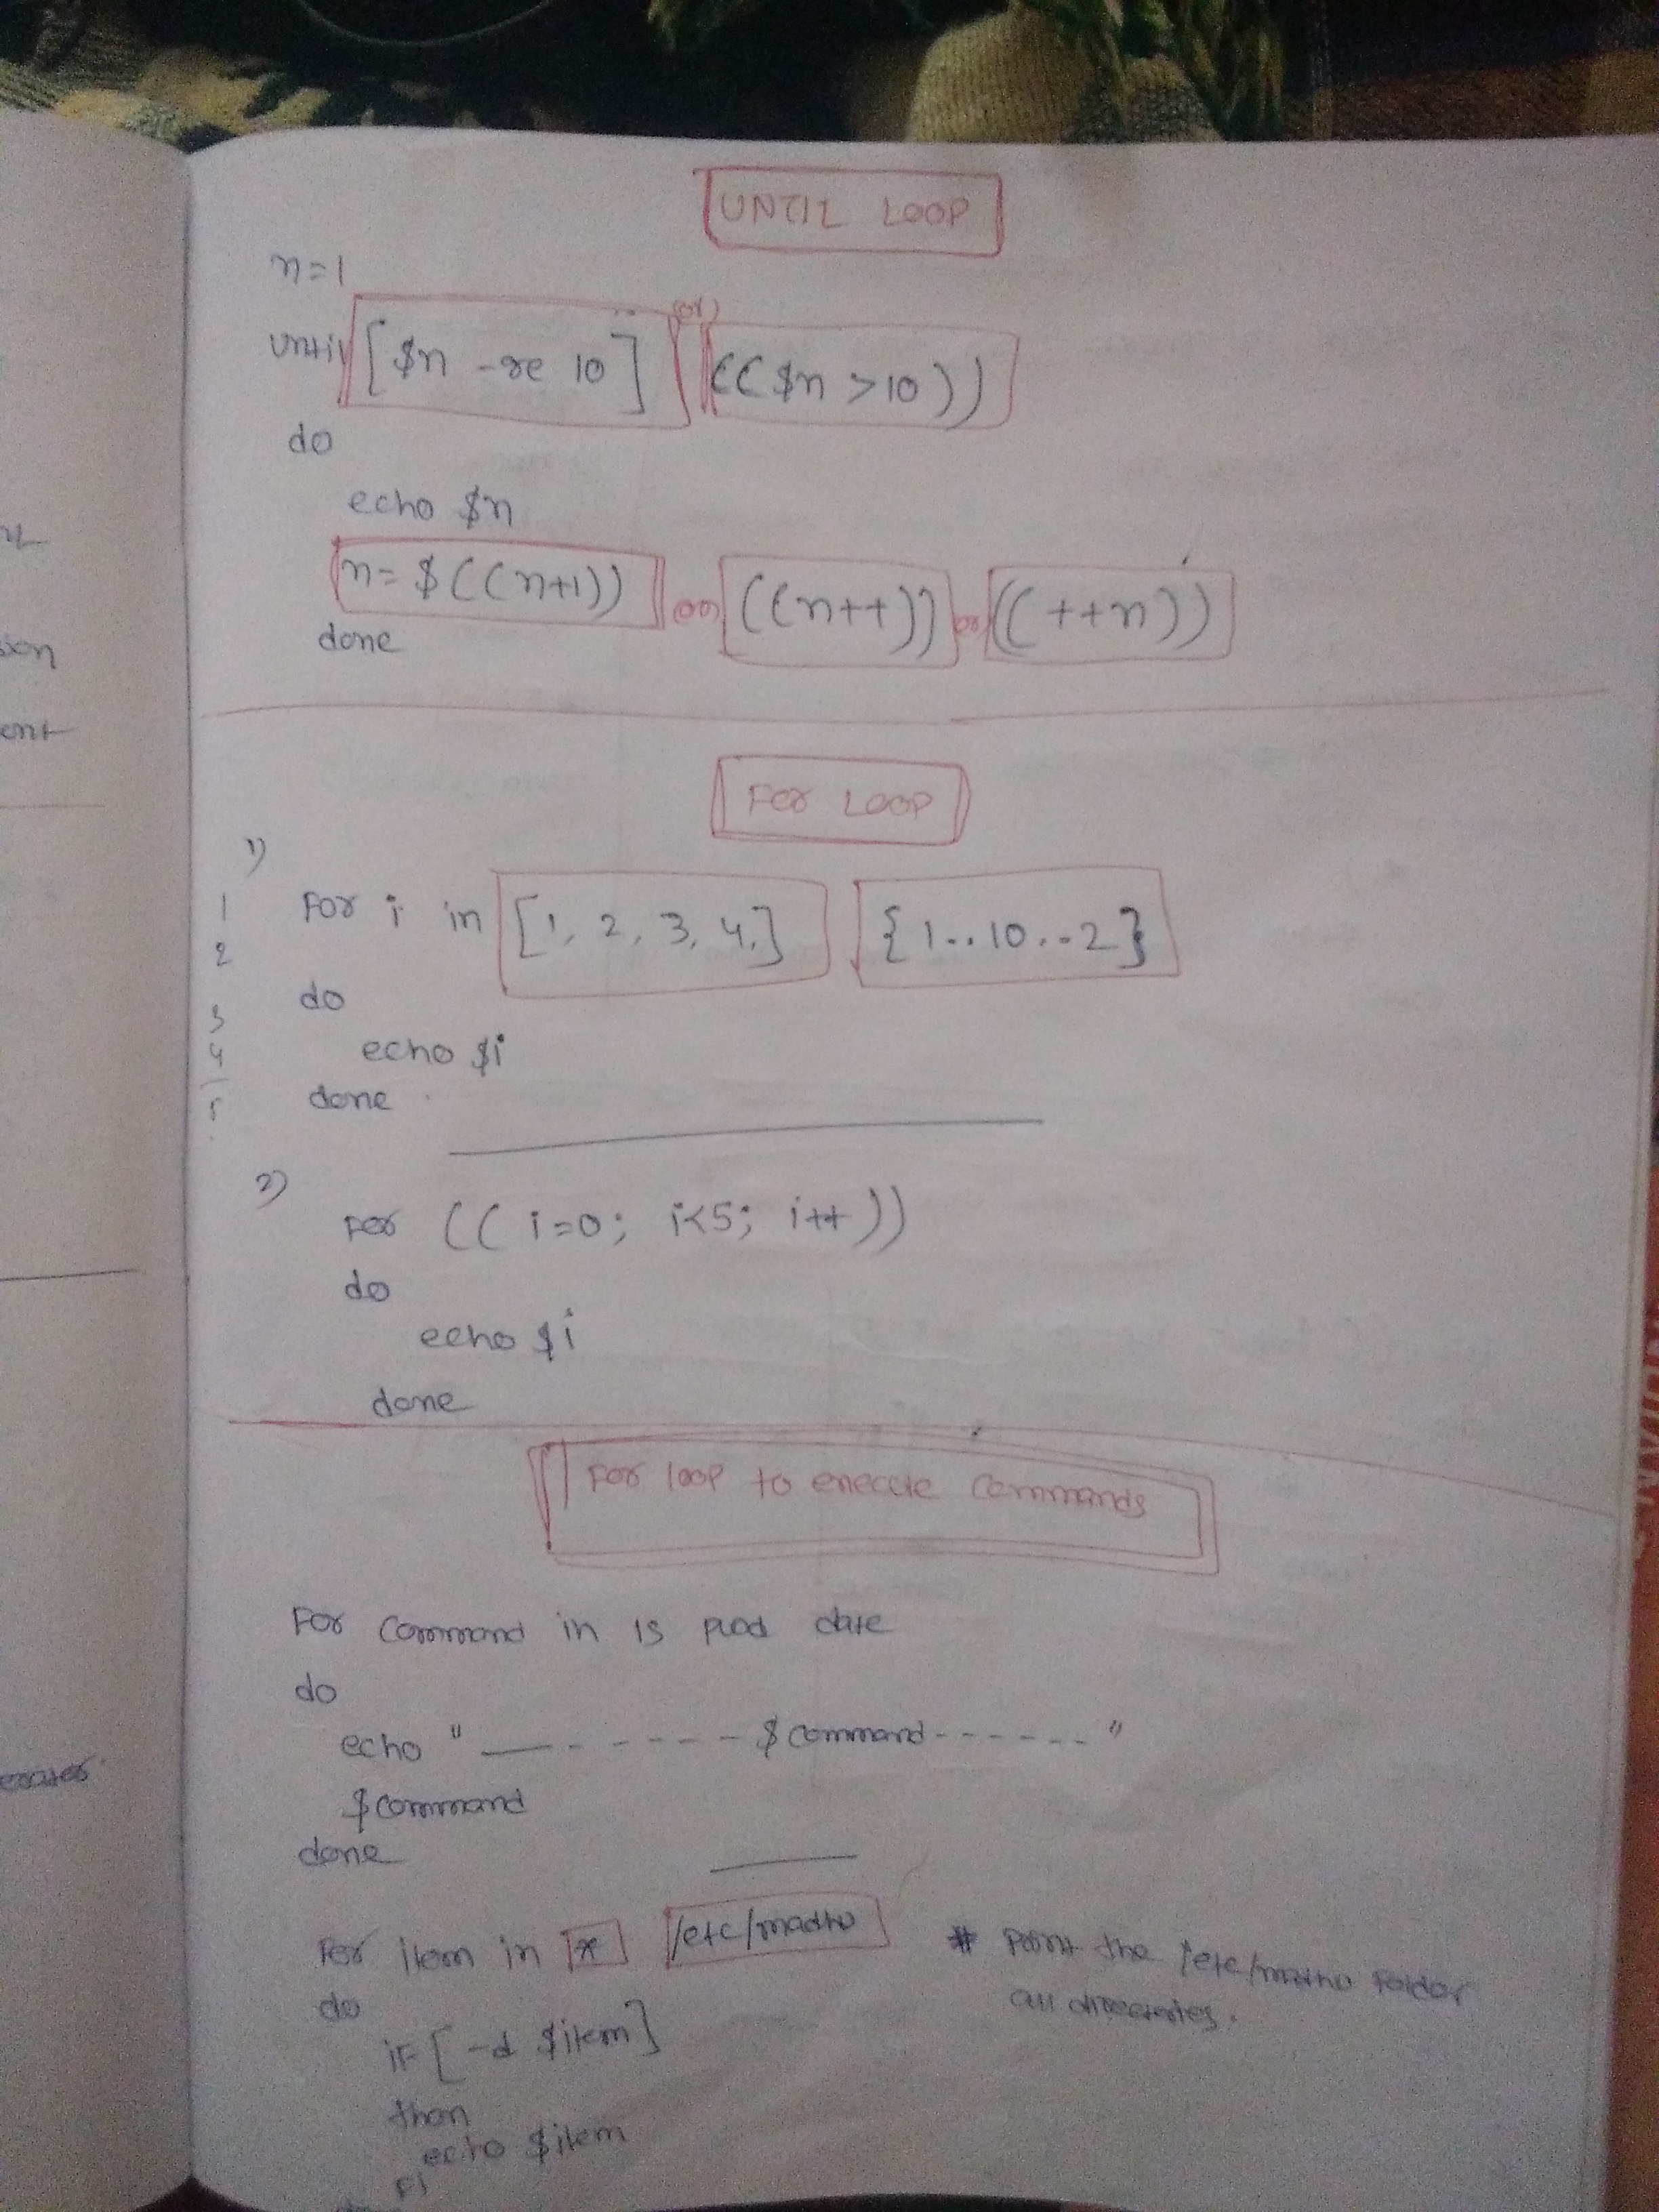 UNTIL LOOP
n=1
until [ $n -ge 10 ] (or) (( $n > 10 ))
do
echo $n
n= $((n+1)) (or) ((n++)) or ((++n))
done
For LOOP
1)
1
2
3
4
5
For i in [1, 2, 3, 4,] {1..10..2}
do
echo $i
done
2)
For (( i=0; i<5; i++ ))
do
echo $i
done
For loop to execute commands
For command in ls pwd date
do
echo "--------$command------"
$command
done
For item in * /etc/madhu # Print the /etc/madhu Folder
all directories.
do
if [ -d $item ]
then
echo $item
Fi